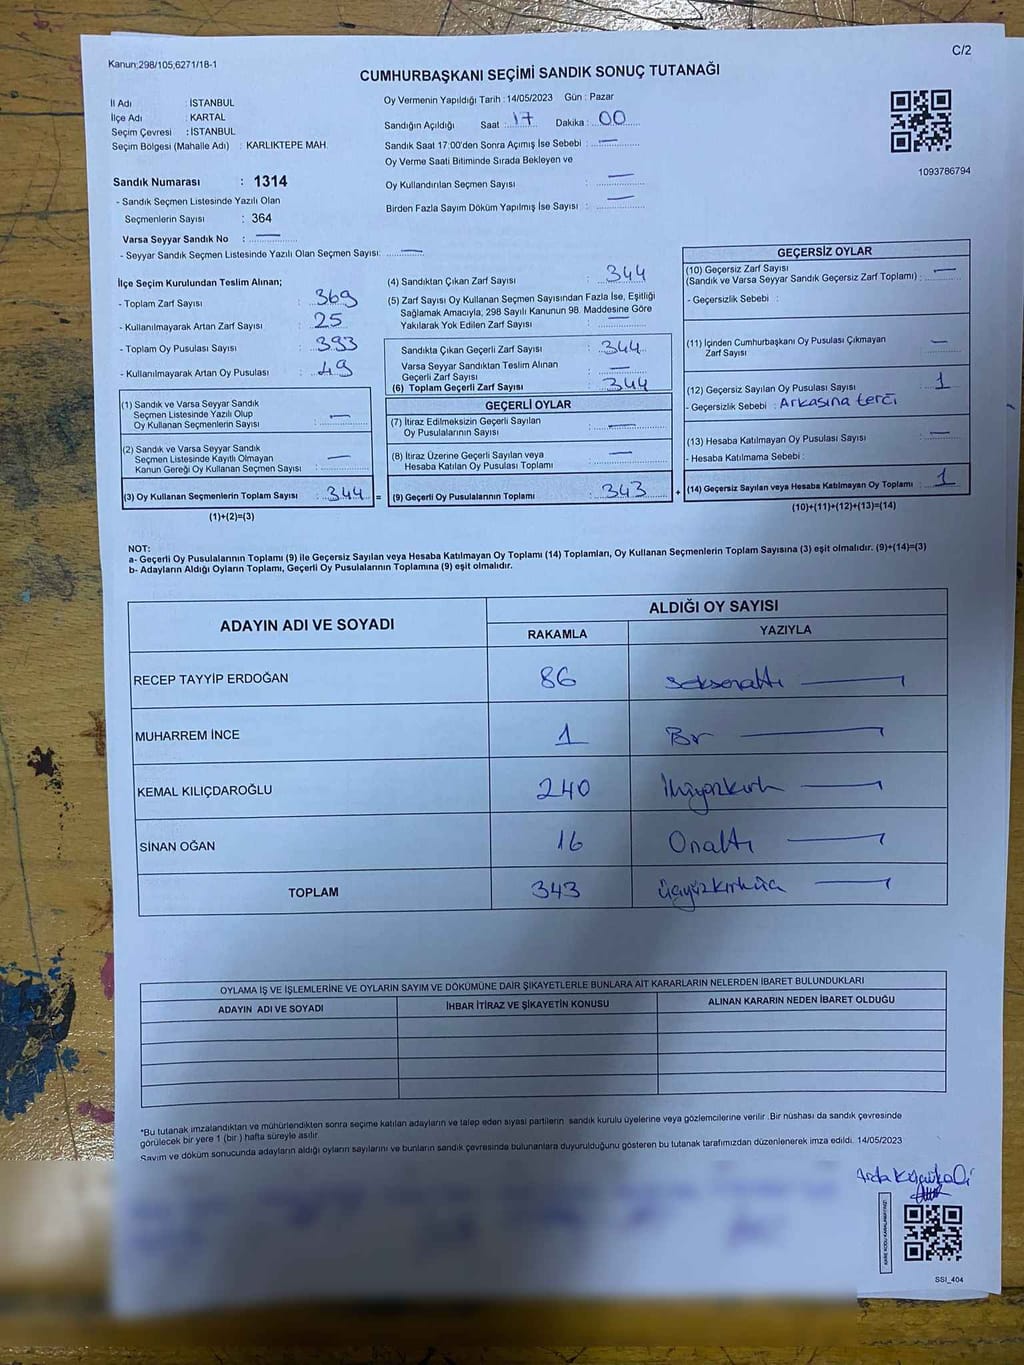 Kanun;298/105,6271/18-1
C/2
CUMHURBAŞKANI SEÇİMİ SANDIK SONUÇ TUTANAĞI
İl Adı : İSTANBUL
İlçe Adı : KARTAL
Seçim Çevresi : İSTANBUL
Seçim Bölgesi (Mahalle Adı) : KARLIKTEPE MAH.
Sandık Numarası : 1314
- Sandık Seçmen Listesinde Yazılı Olan
Seçmenlerin Sayısı : 364
Varsa Seyyar Sandık No : —
- Seyyar Sandık Seçmen Listesinde Yazılı Olan Seçmen Sayısı: —
Oy Vermenin Yapıldığı Tarih : 14/05/2023 Gün : Pazar
Sandığın Açıldığı Saat : 17 Dakika : 00
Sandık Saat 17:00'den Sonra Açımış İse Sebebi : —
Oy Verme Saati Bitiminde Sırada Bekleyen ve
Oy Kullandırılan Seçmen Sayısı : —
Birden Fazla Sayım Döküm Yapılmış İse Sayısı : —
1093786794
İlçe Seçim Kurulundan Teslim Alınan;
- Toplam Zarf Sayısı : 369
- Kullanılmayarak Artan Zarf Sayısı : 25
- Toplam Oy Pusulası Sayısı : 393
- Kullanılmayarak Artan Oy Pusulası : 49
(1) Sandık ve Varsa Seyyar Sandık
Seçmen Listesinde Yazılı Olup
Oy Kullanan Seçmenlerin Sayısı : —
(2) Sandık ve Varsa Seyyar Sandık
Seçmen Listesinde Kayıtlı Olmayan
Kanun Gereği Oy Kullanan Seçmen Sayısı : —
(3) Oy Kullanan Seçmenlerin Toplam Sayısı : 344 =
(1)+(2)=(3)
(4) Sandıktan Çıkan Zarf Sayısı : 344
(5) Zarf Sayısı Oy Kullanan Seçmen Sayısından Fazla İse, Eşitliği
Sağlamak Amacıyla, 298 Sayılı Kanunun 98. Maddesine Göre
Yakılarak Yok Edilen Zarf Sayısı : —
Sandıkta Çıkan Geçerli Zarf Sayısı : 344
Varsa Seyyar Sandıktan Teslim Alınan
Geçerli Zarf Sayısı : —
(6) Toplam Geçerli Zarf Sayısı : 344
GEÇERLİ OYLAR
(7) İtiraz Edilmeksizin Geçerli Sayılan
Oy Pusulalarının Sayısı : —
(8) İtiraz Üzerine Geçerli Sayılan veya
Hesaba Katılan Oy Pusulası Toplamı : —
(9) Geçerli Oy Pusulalarının Toplamı : 343 +
GEÇERSİZ OYLAR
(10) Geçersiz Zarf Sayısı
(Sandık ve Varsa Seyyar Sandık Geçersiz Zarf Toplamı) : —
- Geçersizlik Sebebi :
(11) İçinden Cumhurbaşkanı Oy Pusulası Çıkmayan
Zarf Sayısı : —
(12) Geçersiz Sayılan Oy Pusulası Sayısı : 1
- Geçersizlik Sebebi : Arkasına terci
(13) Hesaba Katılmayan Oy Pusulası Sayısı : —
- Hesaba Katılmama Sebebi :
(14) Geçersiz Sayılan veya Hesaba Katılmayan Oy Toplamı : 1
(10)+(11)+(12)+(13)=(14)
NOT:
a- Geçerli Oy Pusulalarının Toplamı (9) ile Geçersiz Sayılan veya Hesaba Katılmayan Oy Toplamı (14) Toplamları, Oy Kullanan Seçmenlerin Toplam Sayısına (3) eşit olmalıdır. (9)+(14)=(3)
b- Adayların Aldığı Oyların Toplamı, Geçerli Oy Pusulalarının Toplamına (9) eşit olmalıdır.
ADAYIN ADI VE SOYADI ALDIĞI OY SAYISI
RAKAMLA YAZIYLA
RECEP TAYYİP ERDOĞAN 86 seksenaltı
MUHARREM İNCE 1 Bir
KEMAL KILIÇDAROĞLU 240 ikiyüzkırk
SİNAN OĞAN 16 Onaltı
TOPLAM 343 üçyüzkırküç
OYLAMA İŞ VE İŞLEMLERİNE VE OYLARIN SAYIM VE DÖKÜMÜNE DAİR ŞİKAYETLERLE BUNLARA AİT KARARLARIN NELERDEN İBARET BULUNDUKLARI
ADAYIN ADI VE SOYADI İHBAR İTİRAZ VE ŞİKAYETİN KONUSU ALINAN KARARIN NEDEN İBARET OLDUĞU
*Bu tutanak imzalandıktan ve mühürlendikten sonra seçime katılan adayların ve talep eden siyasi partilerin sandık kurulu üyelerine veya gözlemcilerine verilir .Bir nüshası da sandık çevresinde
görülecek bir yere 1 (bir ) hafta süreyle asılır.
Sayım ve döküm sonucunda adayların aldığı oyların sayılarını ve bunların sandık çevresinde bulunanlara duyurulduğunu gösteren bu tutanak tarafımızdan düzenlenerek imza edildi. 14/05/2023
SSI_404